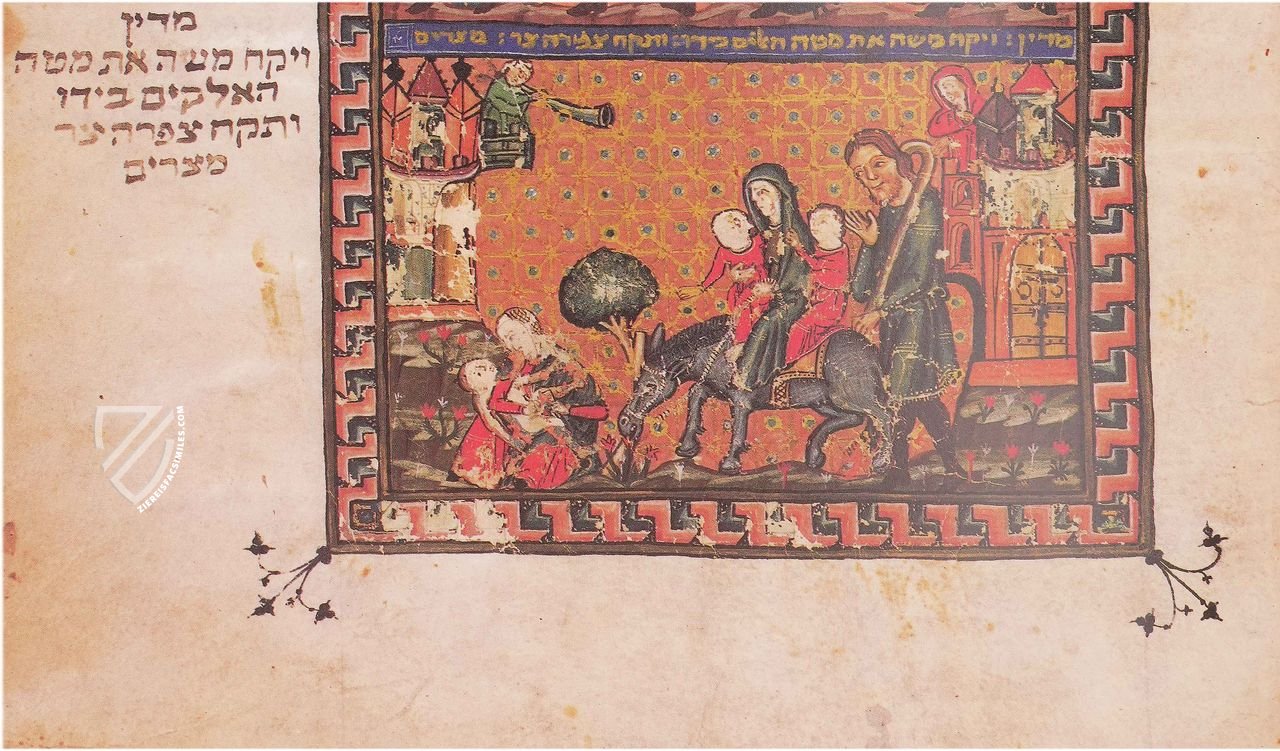 מדין
ויקח משה את מטה
האלקים בידו
ותקח צפרה צר
מצרים
מדין : ויקח משה את מטה האלים בידו : ותקח צפורה צר : מצרים
ZIEREISFACSIMILES.COM